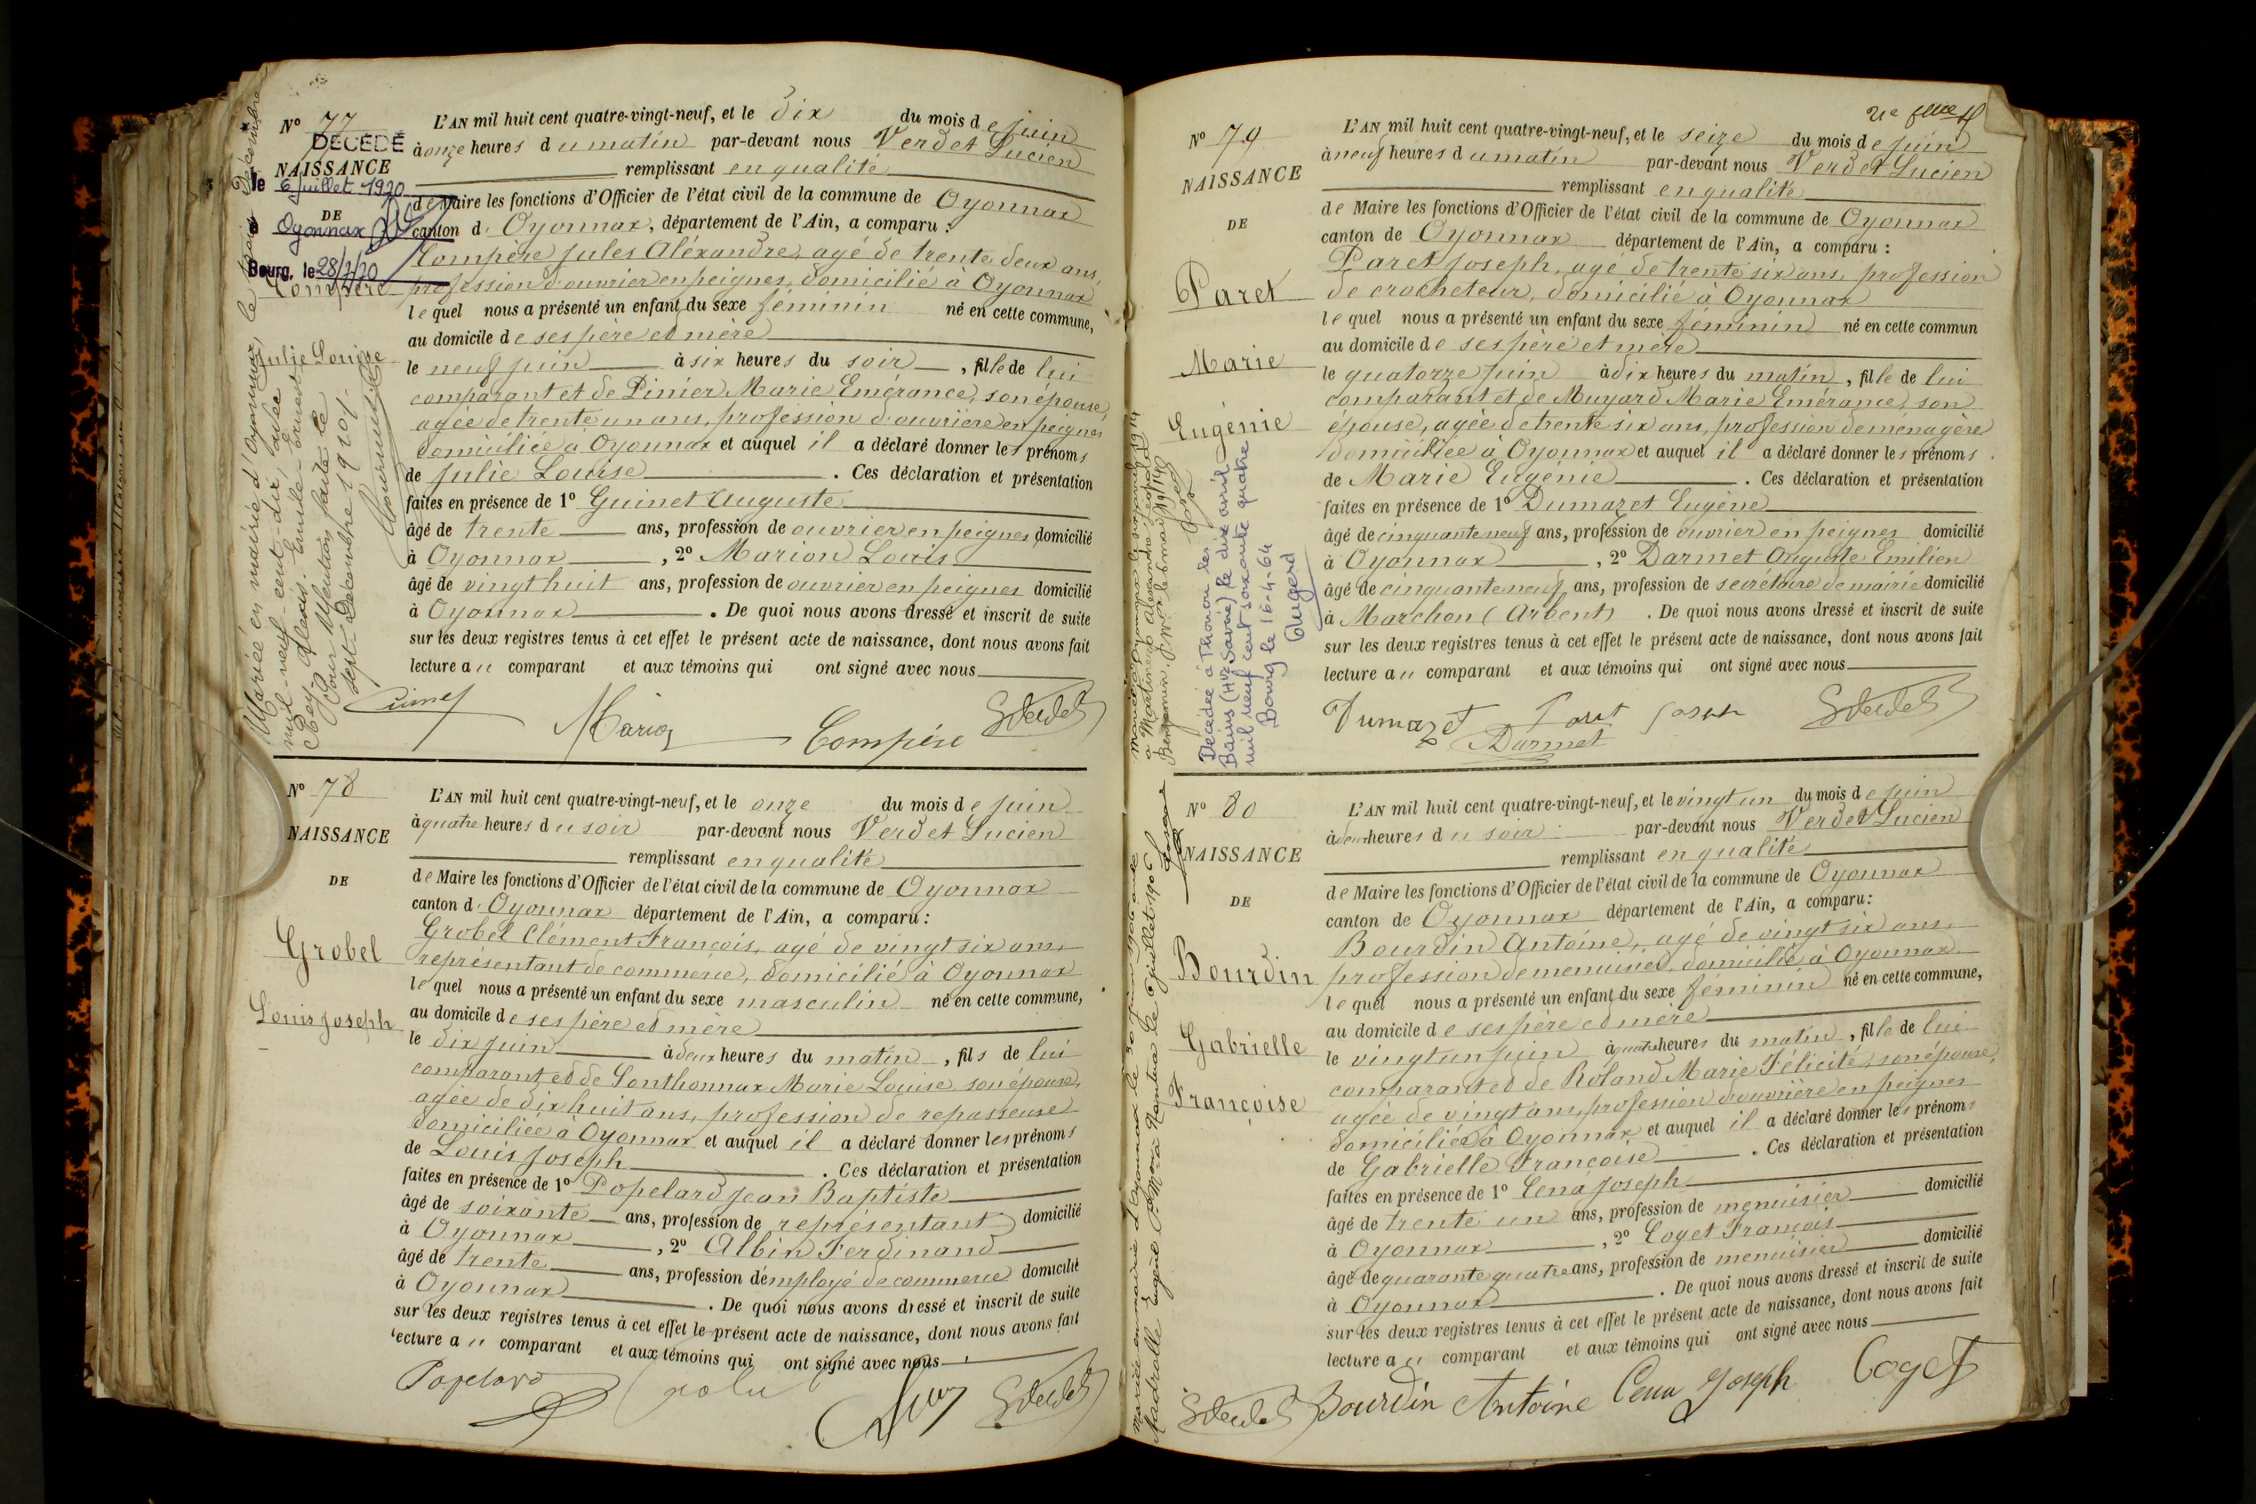 N° 77
DÉCÉDÉ
NAISSANCE
le 6 juillet 1920
DE
à Oyonnax
Bourg, le 28/7/20
Compère
Julie Louise
Mariée en mairie d'Oyonnax le trois Décembre
mil-neuf-cent-dix, avec
Rey, Alexis, Emile
Pour Mention faite le
sept Décembre 1910.
L'AN mil huit cent quatre-vingt-neuf, et le dix du mois de juin
à onze heures du matin par-devant nous Verdet Lucien
remplissant en qualité
de Maire les fonctions d'Officier de l'état civil de la commune de Oyonnax
canton d' Oyonnax, département de l'Ain, a comparu :
Compère Jules Aléxandre, agé de trente deux ans,
profession d'ouvrier en peignes, domicilié à Oyonnax
lequel nous a présenté un enfant du sexe féminin né en cette commune,
au domicile de ses père et mère
le neuf juin à six heures du soir, fille de lui
comparant et de Pinier Marie Emérance, son épouse,
agée de trente un ans, profession d'ouvrière en peignes
domiciliée à Oyonnax et auquel il a déclaré donner les prénoms
de Julie Louise. Ces déclaration et présentation
faites en présence de 1° Guinet Auguste
âgé de trente ans, profession de ouvrier en peignes domicilié
à Oyonnax, 2° Marion Louis
âgé de vingt huit ans, profession de ouvrier en peignes domicilié
à Oyonnax. De quoi nous avons dressé et inscrit de suite
sur les deux registres tenus à cet effet le présent acte de naissance, dont nous avons fait
lecture au comparant et aux témoins qui ont signé avec nous
Guinet Marion Compère Verdet
N° 78
NAISSANCE
DE
Grobel
Louis Joseph
L'AN mil huit cent quatre-vingt-neuf, et le onze du mois de juin
à quatre heures du soir par-devant nous Verdet Lucien
remplissant en qualité
de Maire les fonctions d'Officier de l'état civil de la commune de Oyonnax
canton d' Oyonnax département de l'Ain, a comparu :
Grobel Clément François, agé de vingt six ans,
représentant de commerce, domicilié à Oyonnax
lequel nous a présenté un enfant du sexe masculin né en cette commune,
au domicile de ses père et mère
le dix juin à deux heures du matin, fils de lui
comparant et de Sonthonnax Marie Louise son épouse,
agée de dix huit ans, profession de repasseuse
domiciliée à Oyonnax et auquel il a déclaré donner les prénoms
de Louis Joseph. Ces déclaration et présentation
faites en présence de 1° Popelard Jean Baptiste
âgé de soixante ans, profession de représentant domicilié
à Oyonnax, 2° Albin Ferdinand
âgé de trente ans, profession d'employé de commerce domicilié
à Oyonnax. De quoi nous avons dressé et inscrit de suite
sur les deux registres tenus à cet effet le présent acte de naissance, dont nous avons fait
lecture au comparant et aux témoins qui ont signé avec nous
Popelard Verdet
N° 79
NAISSANCE
DE
Paret
Marie
Eugénie
Décédée à Thonon les
Bains (Hte Savoie) le dix avril
mil neuf cent soixante quatre
Bourg le 16-4-64
Augerd
L'AN mil huit cent quatre-vingt-neuf, et le seize du mois de juin
à neuf heures du matin par-devant nous Verdet Lucien
remplissant en qualité
de Maire les fonctions d'Officier de l'état civil de la commune de Oyonnax
canton de Oyonnax département de l'Ain, a comparu :
Paret Joseph, agé de trente six ans, profession
de crocheteur, domicilié à Oyonnax
lequel nous a présenté un enfant du sexe féminin né en cette commun
au domicile de ses père et mère
le quatorze juin à dix heures du matin, fille de lui
comparant et de Muyard Marie Emérance, son
épouse, agée de trente six ans, profession de ménagère
domiciliée à Oyonnax et auquel il a déclaré donner les prénoms
de Marie Eugénie. Ces déclaration et présentation
faites en présence de 1° Dumazet Eugène
âgé de cinquante neuf ans, profession de ouvrier en peignes domicilié
à Oyonnax, 2° Darmet Auguste Emilien
âgé de cinquante neuf ans, profession de secrétaire de mairie domicilié
à Marchon (Arbent). De quoi nous avons dressé et inscrit de suite
sur les deux registres tenus à cet effet le présent acte de naissance, dont nous avons fait
lecture au comparant et aux témoins qui ont signé avec nous
Dumazet Paret Joseph Verdet
Darmet
N° 80
NAISSANCE
DE
Bourdin
Gabrielle
Françoise
L'AN mil huit cent quatre-vingt-neuf, et le vingt un du mois de juin
à deux heures du soir par-devant nous Verdet Lucien
remplissant en qualité
de Maire les fonctions d'Officier de l'état civil de la commune de Oyonnax
canton de Oyonnax département de l'Ain, a comparu :
Bourdin Antoine, agé de vingt six ans,
profession de menuisier, domicilié à Oyonnax
lequel nous a présenté un enfant du sexe féminin né en cette commune,
au domicile de ses père et mère
le vingt un juin à quatre heures du matin, fille de lui
comparant et de Roland Marie Félicité, son épouse,
agée de vingt ans, profession d'ouvrière en peignes
domiciliée à Oyonnax et auquel il a déclaré donner les prénoms
de Gabrielle Françoise. Ces déclaration et présentation
faites en présence de 1° Cena Joseph
âgé de trente un ans, profession de menuisier domicilié
à Oyonnax, 2° Coget François
âgé de quarante quatre ans, profession de menuisier domicilié
à Oyonnax. De quoi nous avons dressé et inscrit de suite
sur les deux registres tenus à cet effet le présent acte de naissance, dont nous avons fait
lecture au comparant et aux témoins qui ont signé avec nous
Verdet Bourdin Antoine Cena Joseph Coget